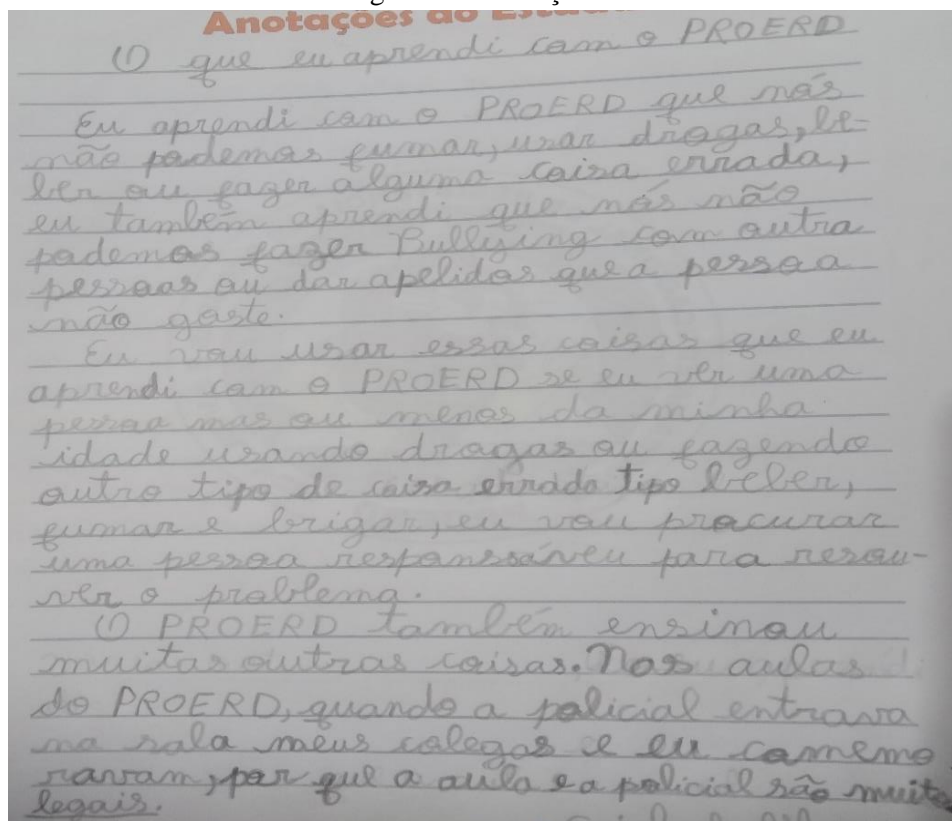 Anotações do Estud
O que eu aprendi com o PROERD
Eu aprendi com o PROERD que nós
não podemos fumar, usar drogas, be-
ber ou fazer alguma coisa errada,
eu também aprendi que nós não
podemos fazer Bullying com outra
pessoas ou dar apelidos que a pessoa
não goste.
Eu vou usar essas coisas que eu
aprendi com o PROERD se eu ver uma
pessoa mas ou menos da minha
idade usando drogas ou fazendo
outro tipo de coisa errado tipo beber,
fumar e brigar, eu vou procurar
uma pessoa responssáveu para resou-
ver o problema.
O PROERD também ensinou
muitas outras coisas. Nas aulas
do PROERD, quando a policial entrava
na sala meus colegas e eu comemo
ravam, por que a aula e a policial são muito
legais.